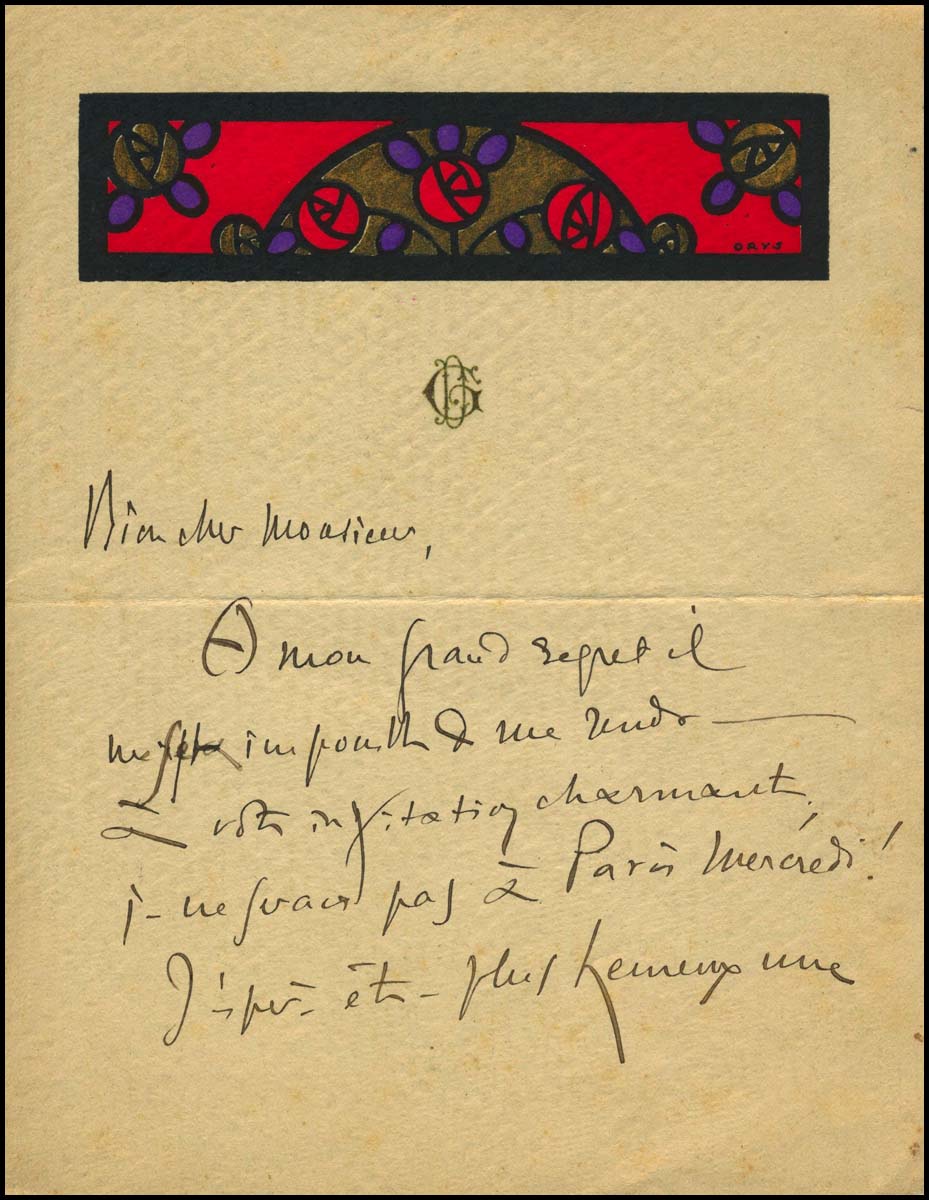 ORYS
Bien cher Monsieur,
A mon grand regret il
impossible de me rendre
à votre invitation charmante,
je ne serais pas à Paris Mercredi!
J'espère être plus heureux une